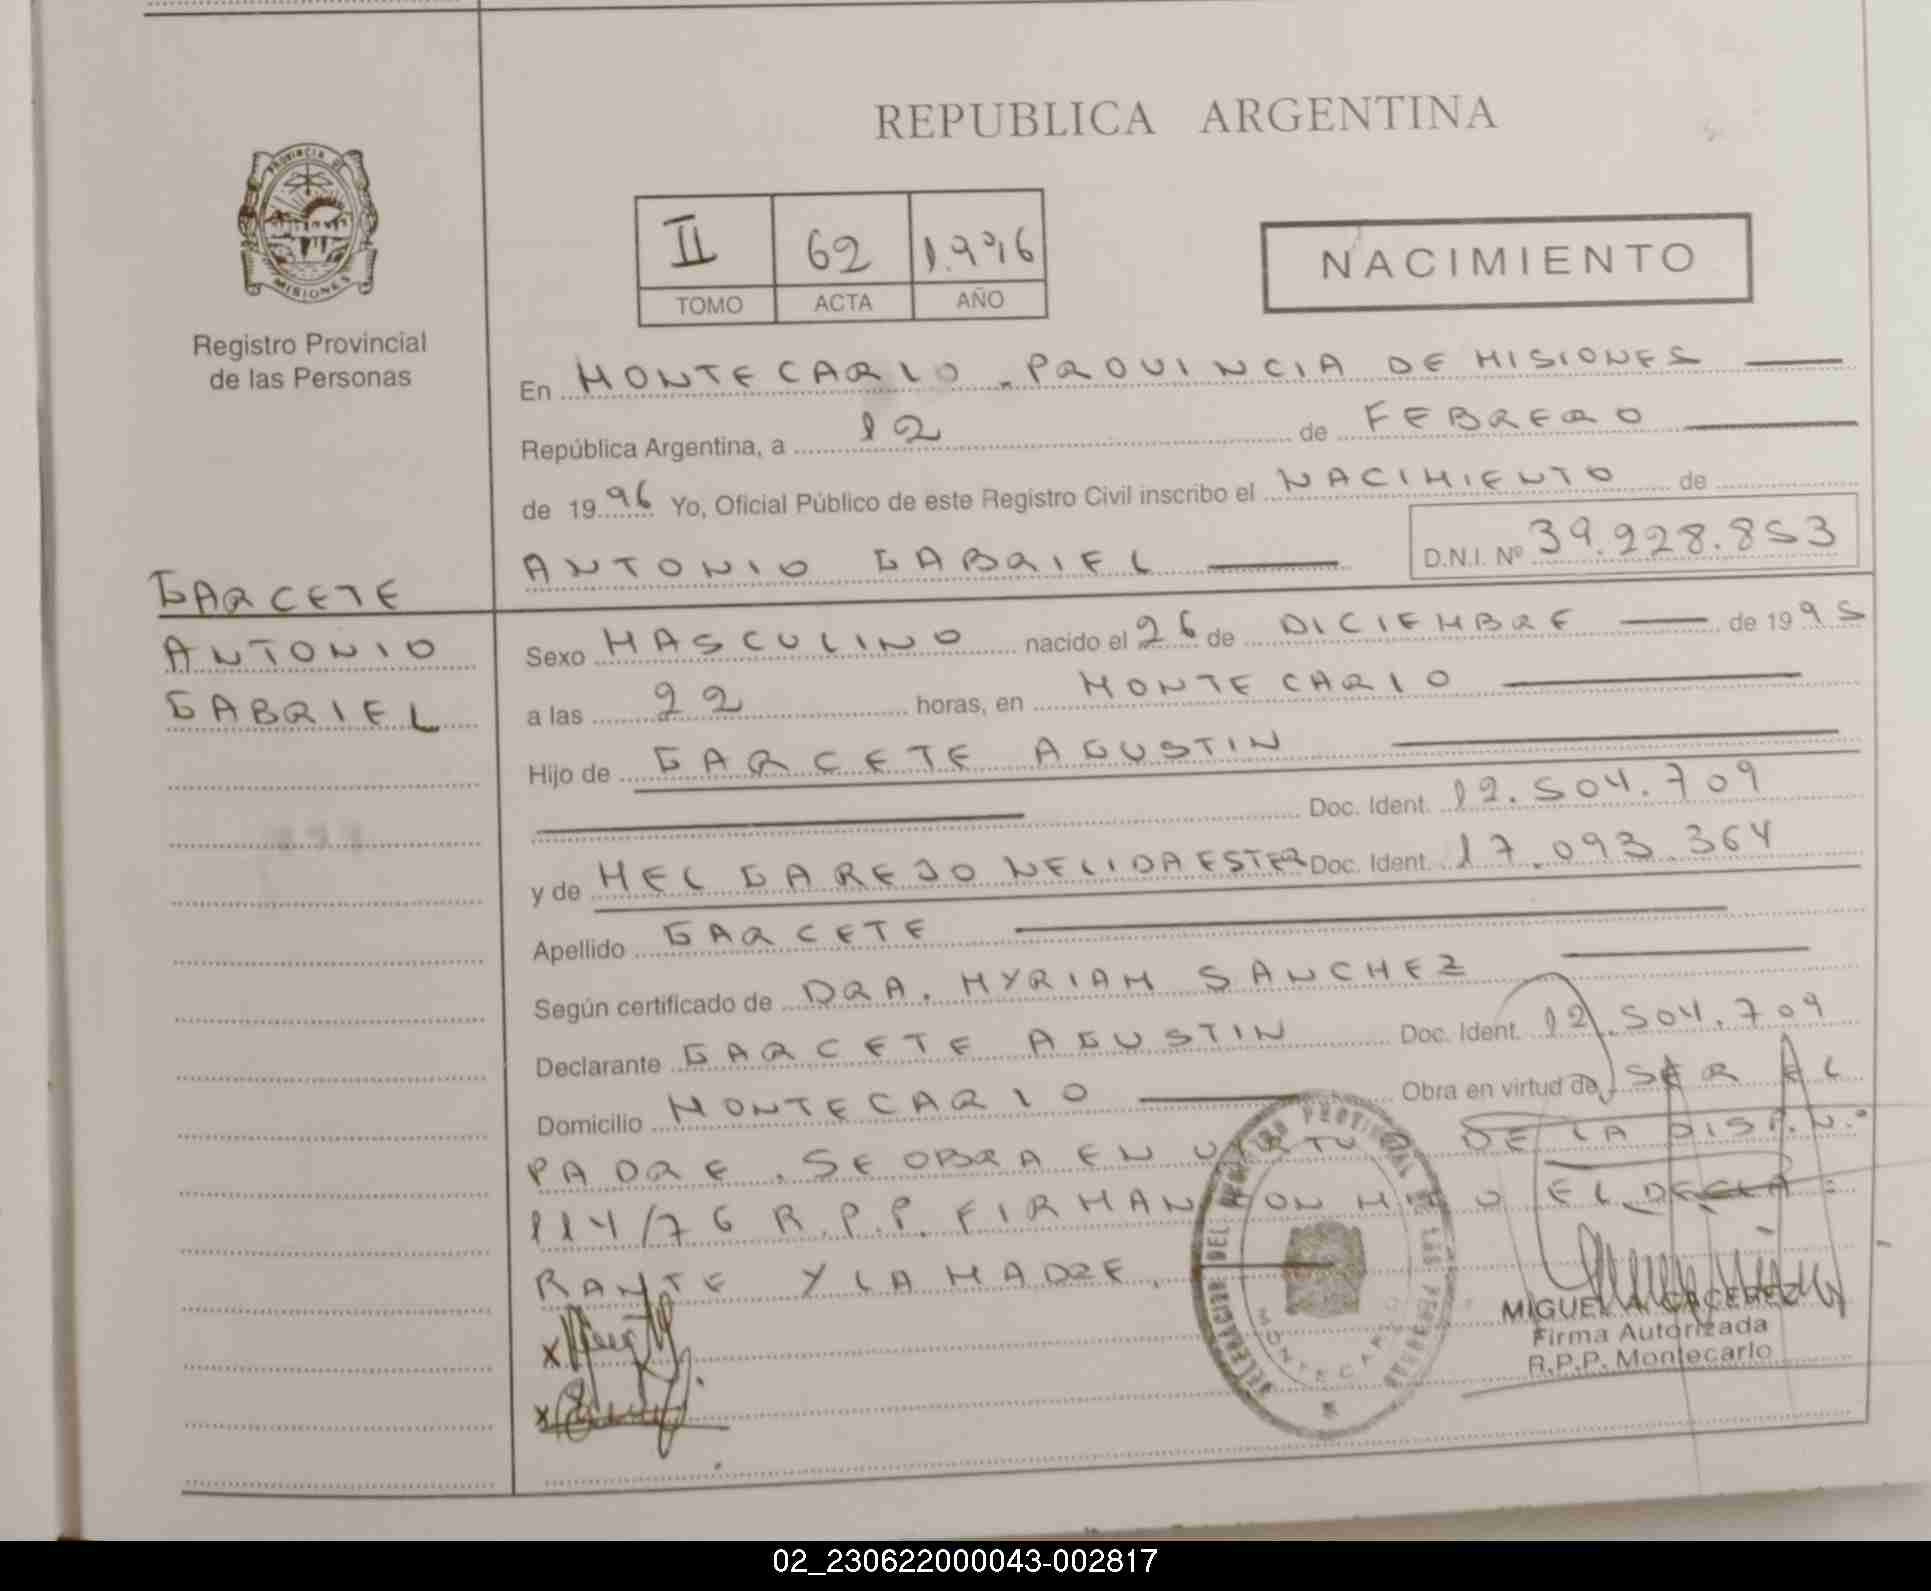 REPUBLICA ARGENTINA
PROVINCIA DE
MISIONES
Registro Provincial
de las Personas
II 62 1.996
TOMO ACTA AÑO
NACIMIENTO
En MONTECARLO. PROVINCIA DE MISIONES
República Argentina, a 12 de FEBRERO
de 1996 Yo, Oficial Público de este Registro Civil inscribo el NACIMIENTO de
ANTONIO GABRIEL D.N.I. Nº 39.928.853
GARCETE
ANTONIO
GABRIEL
Sexo MASCULINO nacido el 26 de DICIEMBRE de 1995
a las 22 horas, en MONTECARLO
Hijo de GARCETE AGUSTIN
Doc. Ident. 12.504.709
y de MELGAREJO NELIDA ESTER Doc. Ident. 17.093.364
Apellido GARCETE
Según certificado de DRA. MYRIAM SANCHEZ
Declarante GARCETE AGUSTIN Doc. Ident. 12.504.709
Domicilio MONTECARLO Obra en virtud de SER EL
PADRE. SE OBRA EN VIRTUD DE LA DISP. Nº
114/76 R.P.P. FIRMAN CONMIGO EL DECLA=
RANTE Y LA MADRE.
DELEGACION DEL REGISTRO PROVINCIAL DE LAS PERSONAS
MONTECARLO
MIGUEL A. CACERES
Firma Autorizada
R.P.P. Montecarlo
02_230622000043-002817